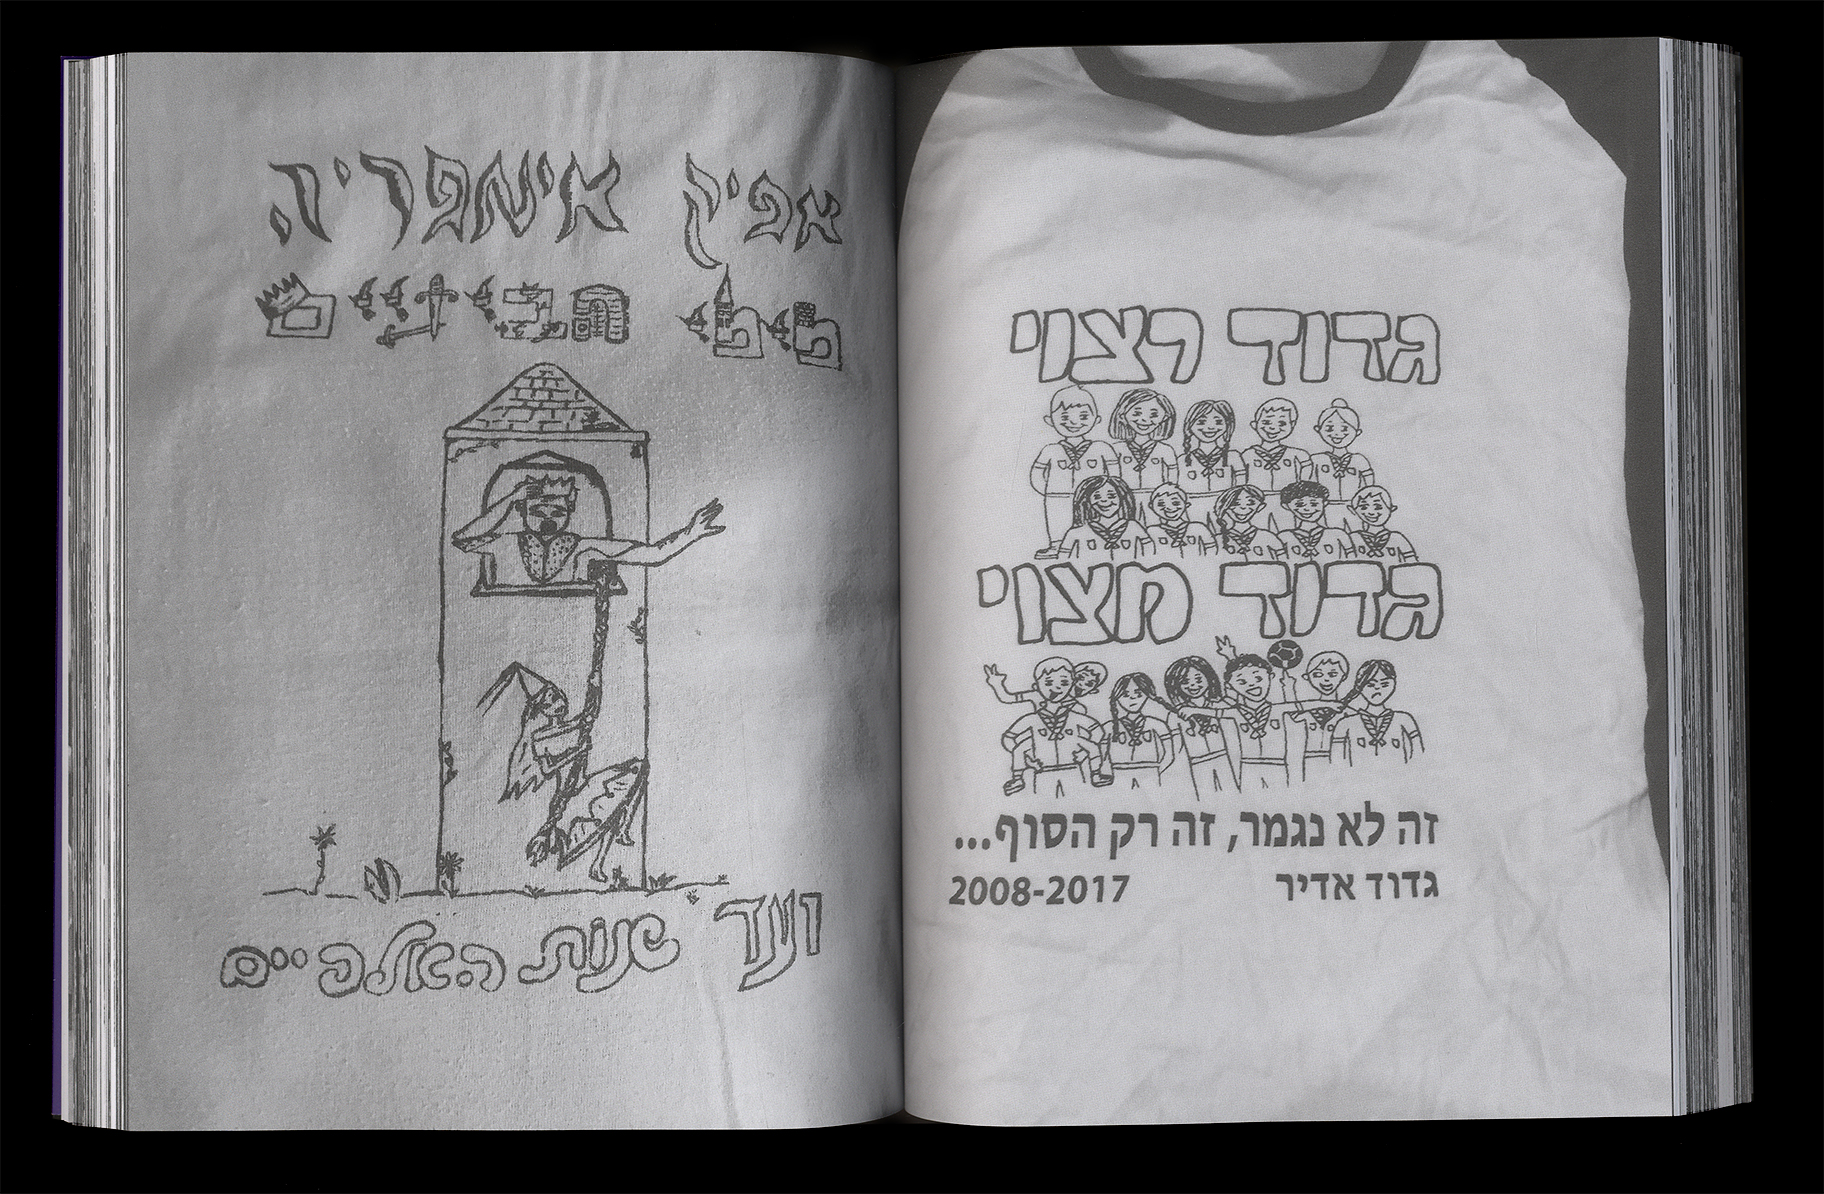 אפיק אימפריה
מימי הביניים
ועד שנות האלפיים
גדוד רצוי
גדוד מצוי
זה לא נגמר, זה רק הסוף...
גדוד אדיר 2008-2017